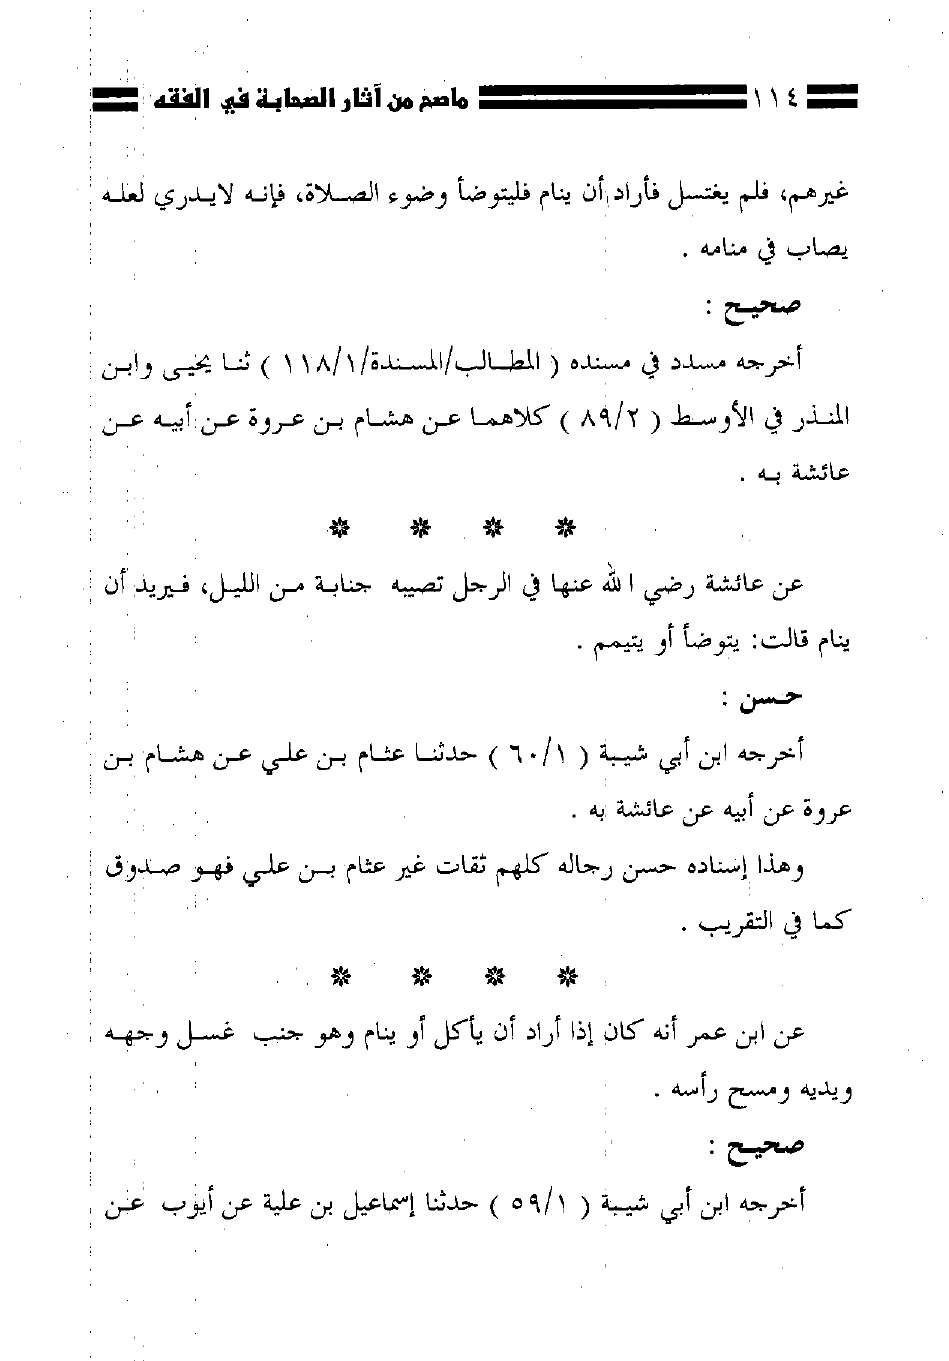 ١١٤ ماصح من آثار الصحابة في الفقه
غيرهم، فلم يغتسل فأراد أن ينام فليتوضأ وضوء الصلاة، فإنه لايدري لعله
يصاب في منامه .
صحيح :
أخرجه مسدد في مسنده ( المطالب/المسندة/١١٨/١ ) ثنا يحيى وابن
المنذر في الأوسط ( ٨٩/٢ ) كلاهما عن هشام بن عروة عن أبيه عن
عائشة به .
عن عائشة رضي الله عنها في الرجل تصيبه جنابة من الليل، فيريد أن
ينام قالت: يتوضأ أو يتيمم .
حسن :
أخرجه ابن أبي شيبة ( ٦٠/١ ) حدثنا عثام بن علي عن هشام بن
عروة عن أبيه عن عائشة به .
وهذا إسناده حسن رجاله كلهم ثقات غير عثام بن علي فهو صدوق
كما في التقريب .
عن ابن عمر أنه كان إذا أراد أن يأكل أو ينام وهو جنب غسل وجهه
ويديه ومسح رأسه .
صحيح :
أخرجه ابن أبي شيبة ( ٥٩/١ ) حدثنا إسماعيل بن علية عن أيوب عن